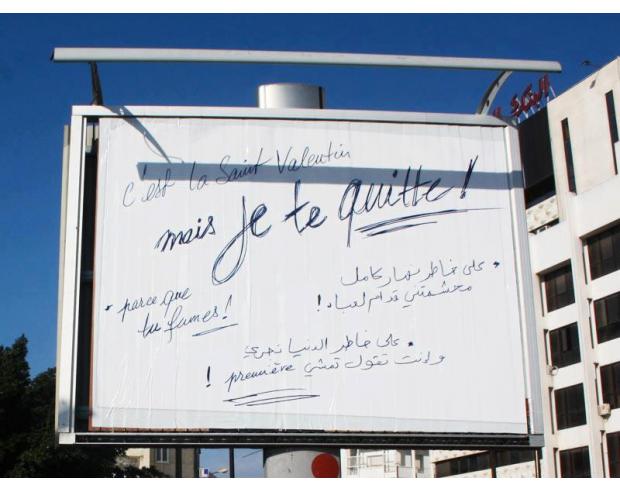 c'est la Saint Valentin
mais je te quitte !
* على خاطر نهار كامل
محشمتني قدام لعباد !
* parce que
tu fumes !
* على خاطر الدنيا تجري
وانت تقول تمشي première !